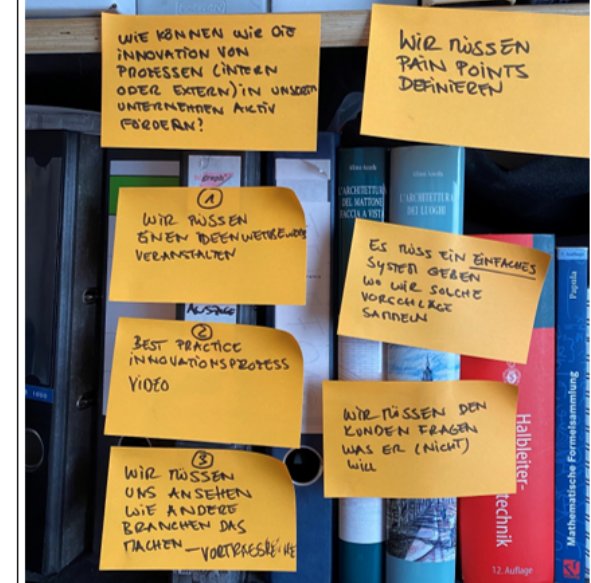 WIE KÖNNEN WIR DIE
INNOVATION VON
PROZESSEN (INTERN
ODER EXTERN) IN UNSEREM
UNTERNEHMEN AKTIV
FÖRDERN?
WIR MÜSSEN
PAIN POINTS
DEFINIEREN
1
WIR MÜSSEN
EINEN IDEENWETTBEWERB
VERANSTALTEN
ES MUSS EIN EINFACHES
SYSTEM GEBEN
WO WIR SOLCHE
VORSCHLÄGE
SAMMELN
2
BEST PRACTICE
INNOVATIONSPROZESS
VIDEO
WIR MÜSSEN DEN
KUNDEN FRAGEN
WAS ER (NICHT)
WILL
3
WIR MÜSSEN
UNS ANSEHEN
WIE ANDERE
BRANCHEN DAS
MACHEN – VORTRAGSREIHE
L'ARCHITETTURA
DEL MATTONE
FACCIA A VISTA
L'ARCHITETTURA
DEI LUOGHI
Halbleiter-
technik
12. Auflage
Papula
Mathematische Formelsammlung